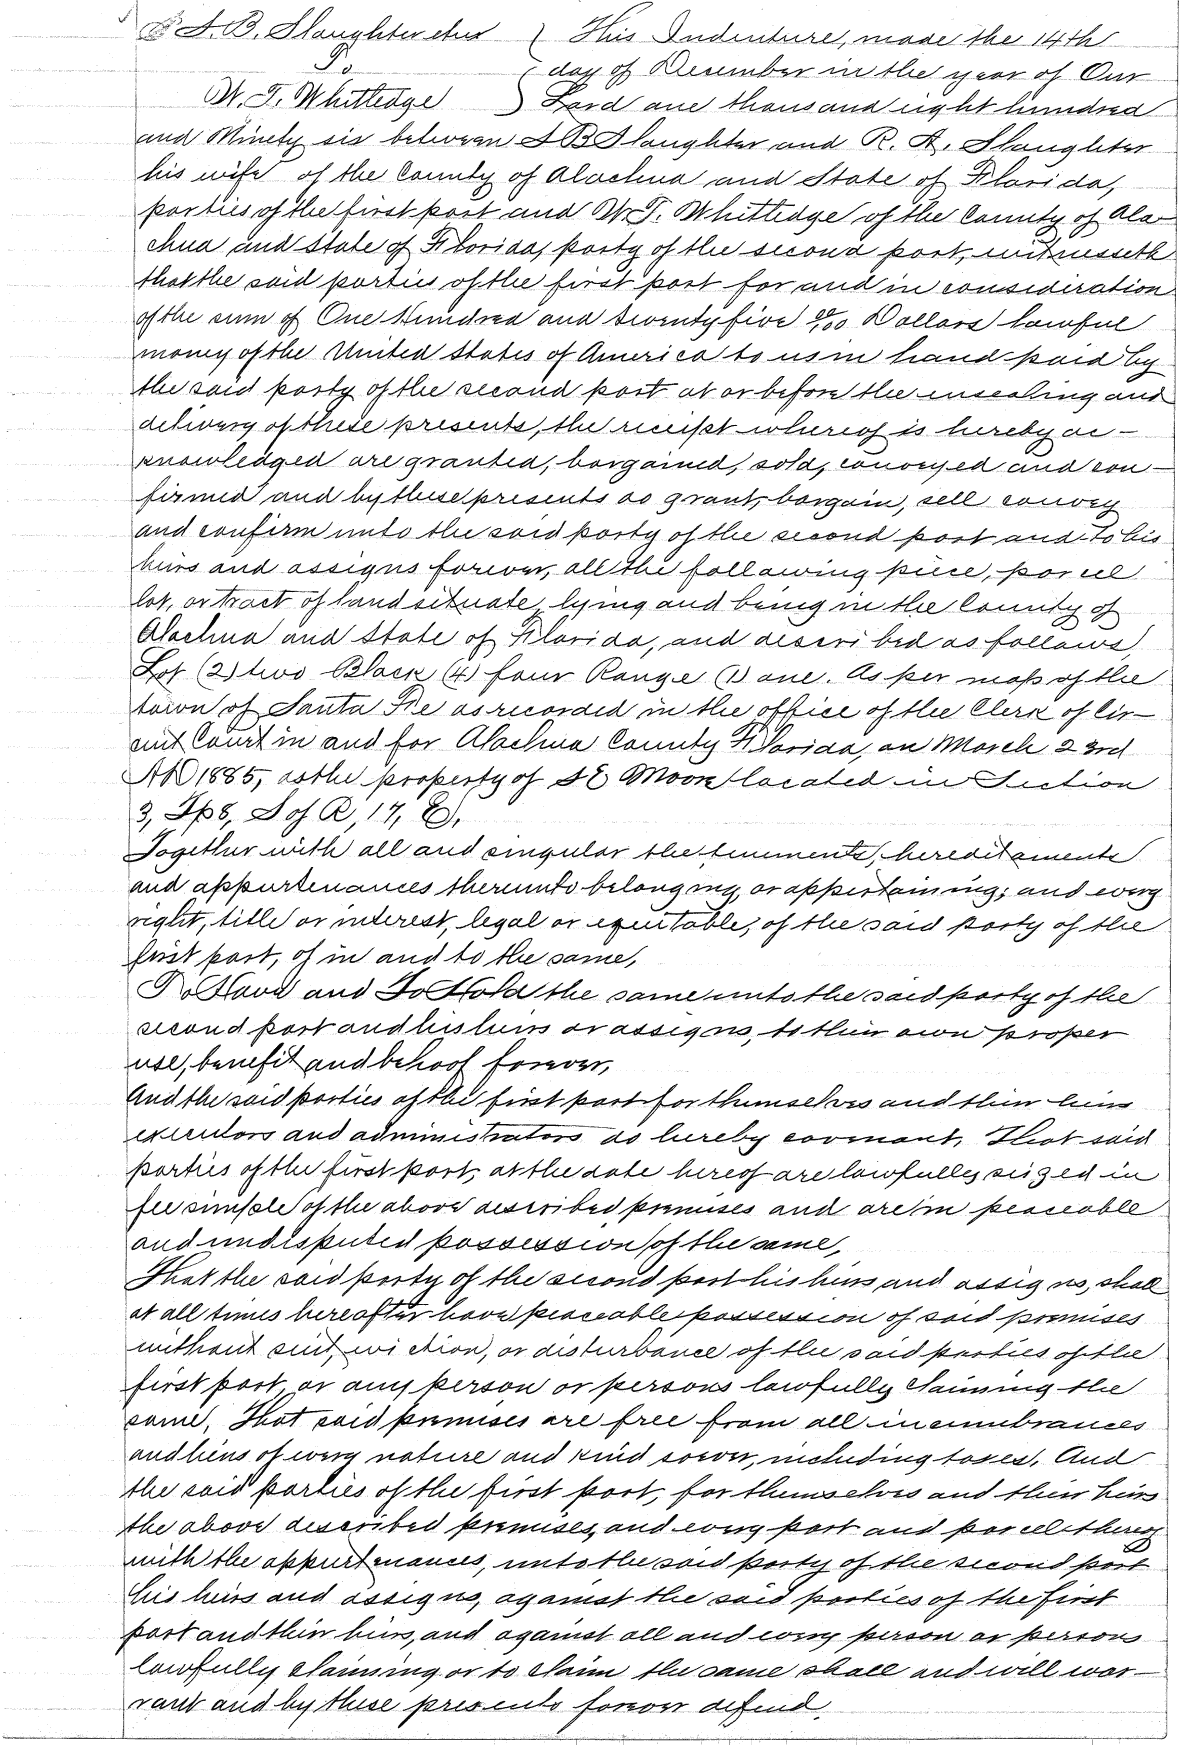 J. B. Slaughter etux } This Indenture, made the 14th
To { day of December in the year of Our
W. T. Whitledge } Lord one thousand eight hundred
and Ninety sis between J B Slaughter and R. A. Slaughter
his wife of the County of Alachua and State of Florida,
parties of the first part and W. T. Whitledge of the County of Ala-
chua and State of Florida, party of the second part, witnesseth
that the said parties of the first part for and in consideration
of the sum of One Hundred and twenty five 0/100 Dollars lawful
money of the United States of America to us in hand paid by
the said party of the second part at or before the ensealing and
delivery of these presents, the receipt whereof is hereby ac-
knowledged are granted, bargained, sold, conveyed and con-
firmed and by these presents do grant, bargain, sell convey
and confirm unto the said party of the second part and to his
heirs and assigns forever, all the following piece, parcel
lot, or tract of land situate, lying and being in the County of
Alachua and State of Florida, and described as follows,
Lot (2) two Block (4) four Range (1) one. As per map of the
town of Santa Fe as recorded in the office of the Clerk of Cir-
cuit Court in and for Alachua County Florida, on March 23rd
AD 1885, as the property of S E Moore located in Section
3, Tp 8, S of R, 17, E,
Together with all and singular the tenements, hereditaments
and appurtenances thereunto belonging, or appertaining; and every
right, title or interest, legal or equitable, of the said party of the
first part, of in and to the same,
To Have and To Hold the same unto the said party of the
second part and his heirs or assigns, to their own proper
use, benefit and behoof forever,
And the said parties of the first part for themselves and their heirs
executors and administrators do hereby covenant, That said
parties of the first part, at the date hereof are lawfully seized in
fee simple of the above described premises and are in peaceable
and undisputed possession of the same,
That the said party of the second part his heirs and assigns, shall
at all times hereafter have peaceable possession of said premises
without suit, eviction, or disturbance of the said parties of the
first part, or any person or persons lawfully claiming the
same, That said premises are free from all incumbrances
and liens of every nature and kind soever, including taxes, And
the said parties of the first part, for themselves and their heirs
the above described premises, and every part and parcel thereof
with the appurtenances, unto the said party of the second part
his heirs and assigns, against the said parties of the first
part and their heirs, and against all and every person or persons
lawfully claiming or to claim the same shall and will war-
rant and by these presents forever defend.